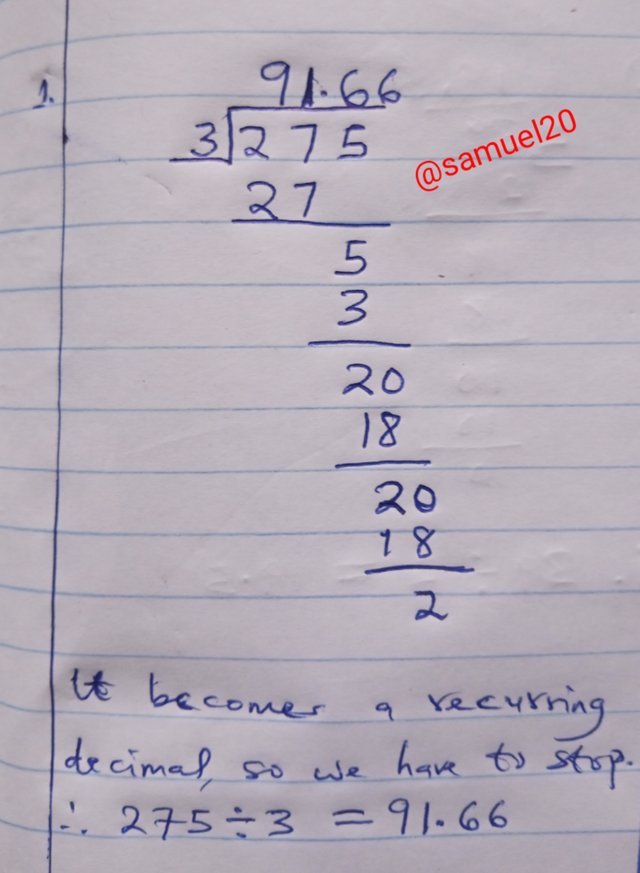 1.
91.66
3 275
@samuel20
27
5
3
20
18
20
18
2
It becomes a recurring
decimal, so we have to stop.
∴ 275÷3 = 91.66